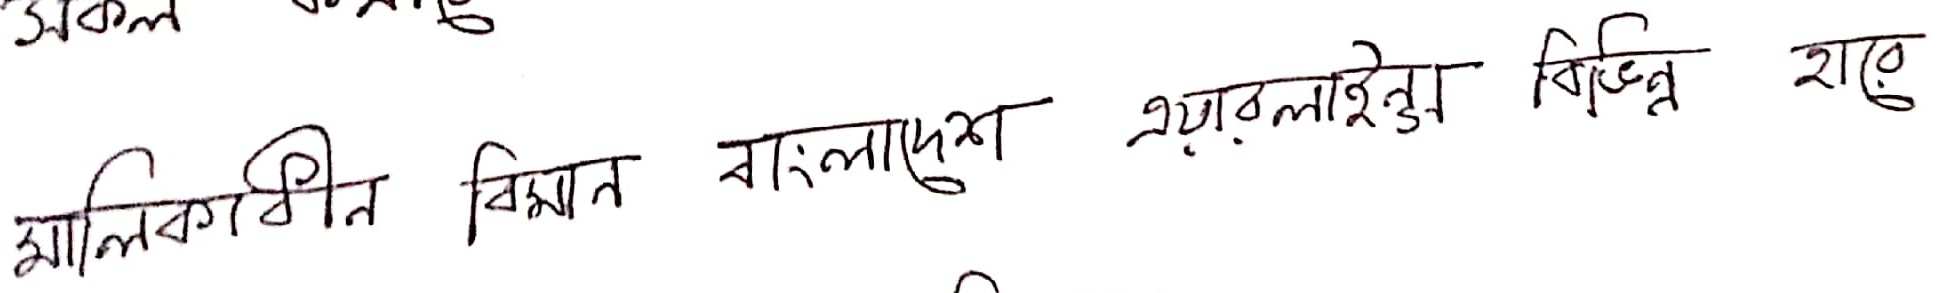 সকল
মালিকাধীন বিমান বাংলাদেশ এয়ারলাইন্স বিভিন্ন হারে